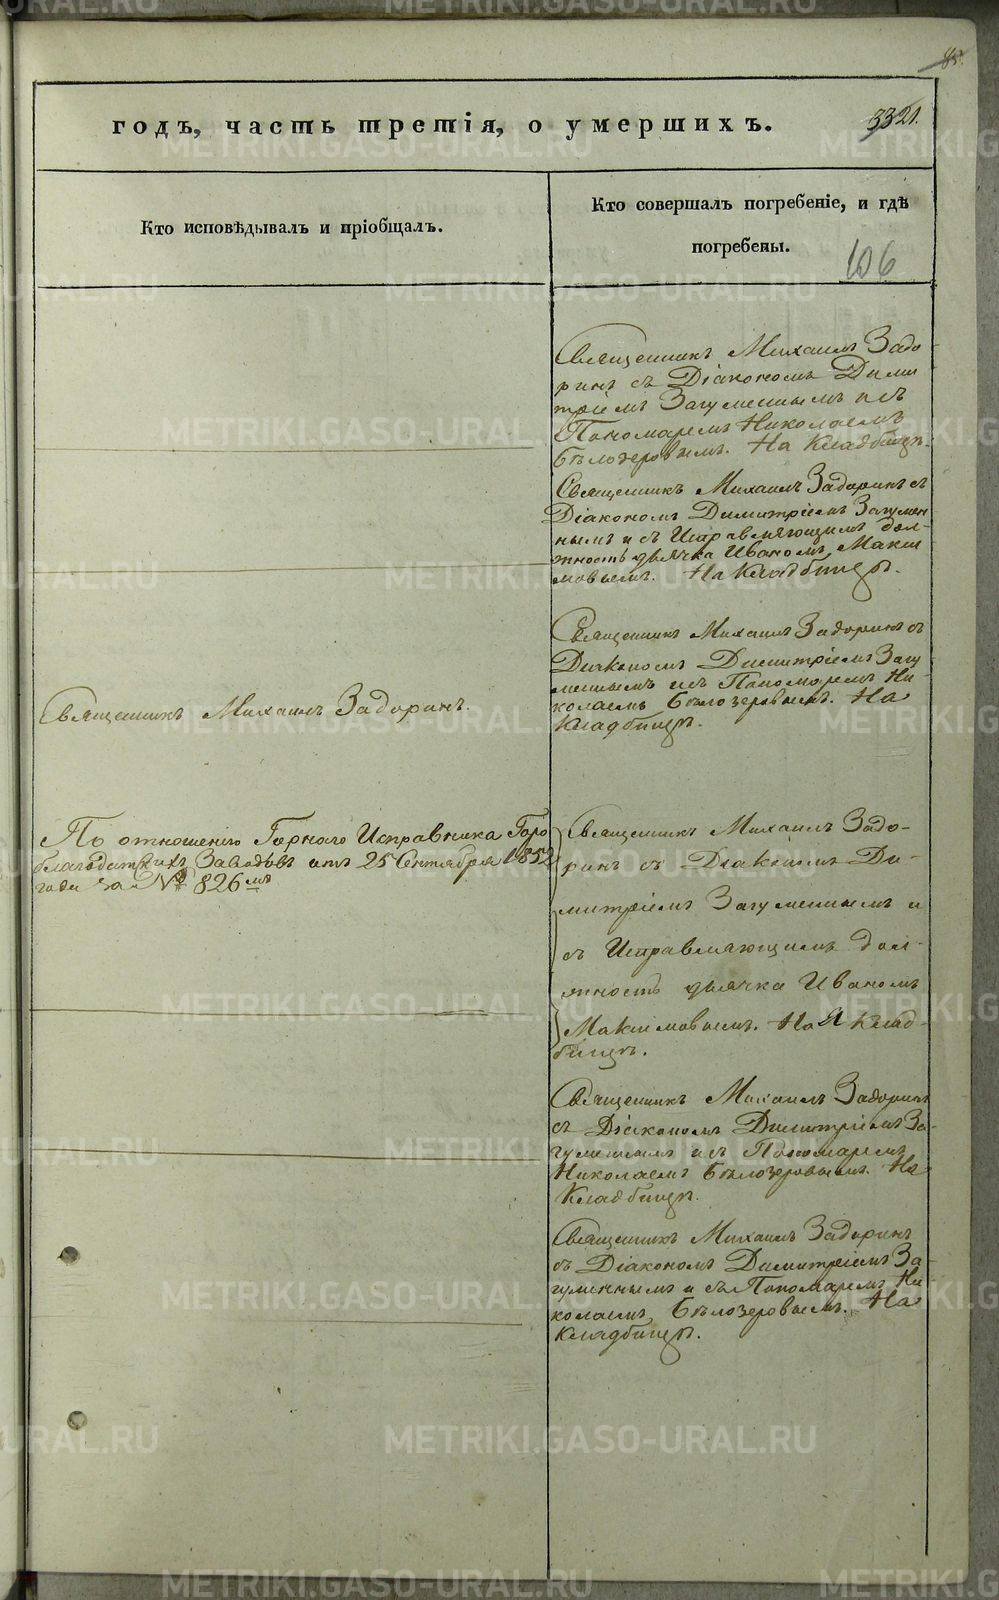 годъ, часть третія, о умершихъ.
Кто исповѣдывалъ и пріобщалъ.
Кто совершалъ погребеніе, и гдѣ
погребены.
106
Священникъ Михаилъ Задо-
ринъ съ Діакономъ Дими
тріемъ Загуменнымъ и съ
Пономаремъ Николаемъ
Бѣлозеровымъ. На Кладбищѣ.
Священникъ Михаилъ Задоринъ съ
Діакономъ Димитріемъ Загумен
нымъ и съ Исправляющимъ дол-
жность дьячка Иваномъ Макси
мовымъ. На Кладбищѣ.
Священникъ Михаилъ Задоринъ.
Священникъ Михаилъ Задоринъ съ
Діакономъ Димитріемъ Загу
меннымъ и съ Пономаремъ Ни-
колаемъ Бѣлозеровымъ. На
Кладбищѣ.
По отношенію Горнаго Исправника Горо
благодатскихъ Заводовъ отъ 25 Сентября 1852
года за № 826мъ
Священникъ Михаилъ Задо-
ринъ съ Діакономъ Ди-
митріемъ Загуменнымъ и
съ Исправляющимъ дол-
жность дьячка Иваномъ
Максимовымъ. На Клад-
бищѣ.
Священникъ Михаилъ Задоринъ
съ Діакономъ Димитріемъ За-
гуменнымъ и съ Пономаремъ
Николаемъ Бѣлозеровымъ. На
Кладбищѣ.
Священникъ Михаилъ Задоринъ
съ Діакономъ Димитріемъ За-
гуменнымъ и съ Пономаремъ Ни
колаемъ Бѣлозеровымъ. На
Кладбищѣ.
METRIKI.GASO-URAL.RU